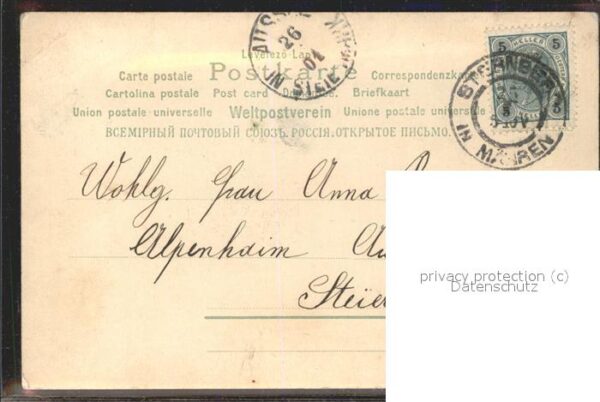 AUSSEE
26
01
IN STEIERMARK
Levelező-Lap
Carte postale Postkarte Correspondenzkarte
Cartolina postale Post card Dopisnice Briefkaart
Union postale universelle Weltpostverein Unione postale universale
ВСЕМІРНЫЙ ПОЧТОВЫЙ СОЮЗЪ. РОССІЯ. ОТКРЫТОЕ ПИСЬМО.
5 HELLER 5
STERNBERG
IN MÄHREN
Wohlg. Frau Anna
Alpenheim Au
Steier
privacy protection (c)
Datenschutz